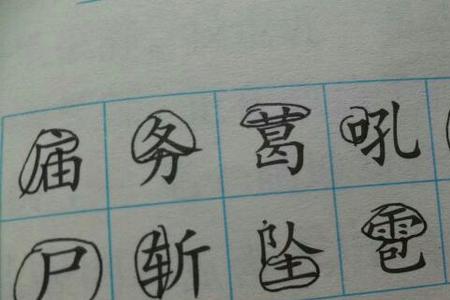 届 务 葛 吼
尸 斩 坠 雹